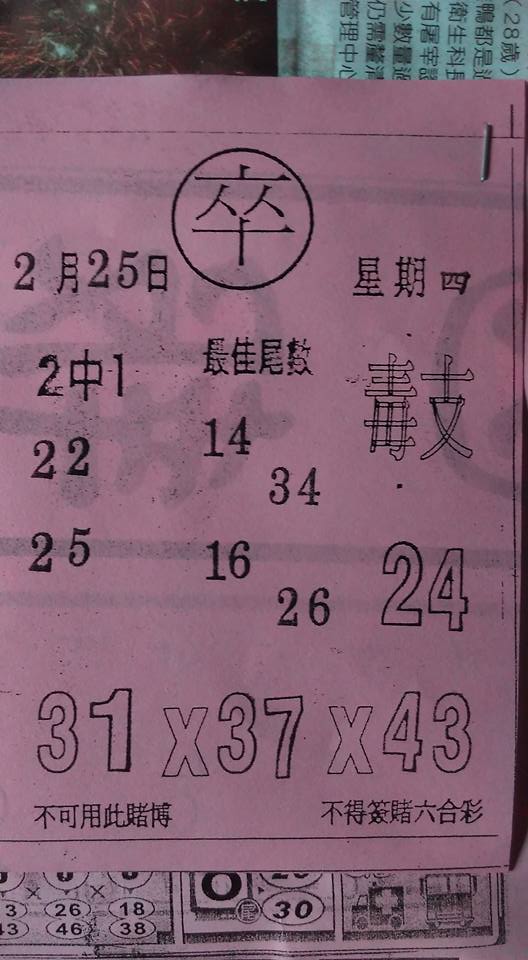 (28歲)
鴨都是
衛生科長
有屠宰
少數量
仍需
管理中心
卒
2月25日 星期四
2中1 最佳尾數
22 14
34
25 16 24
26
31 X 37 X 43
不可用此賭博 不得簽賭六合彩
× ×
3 26 18 尾 30
43 46 38